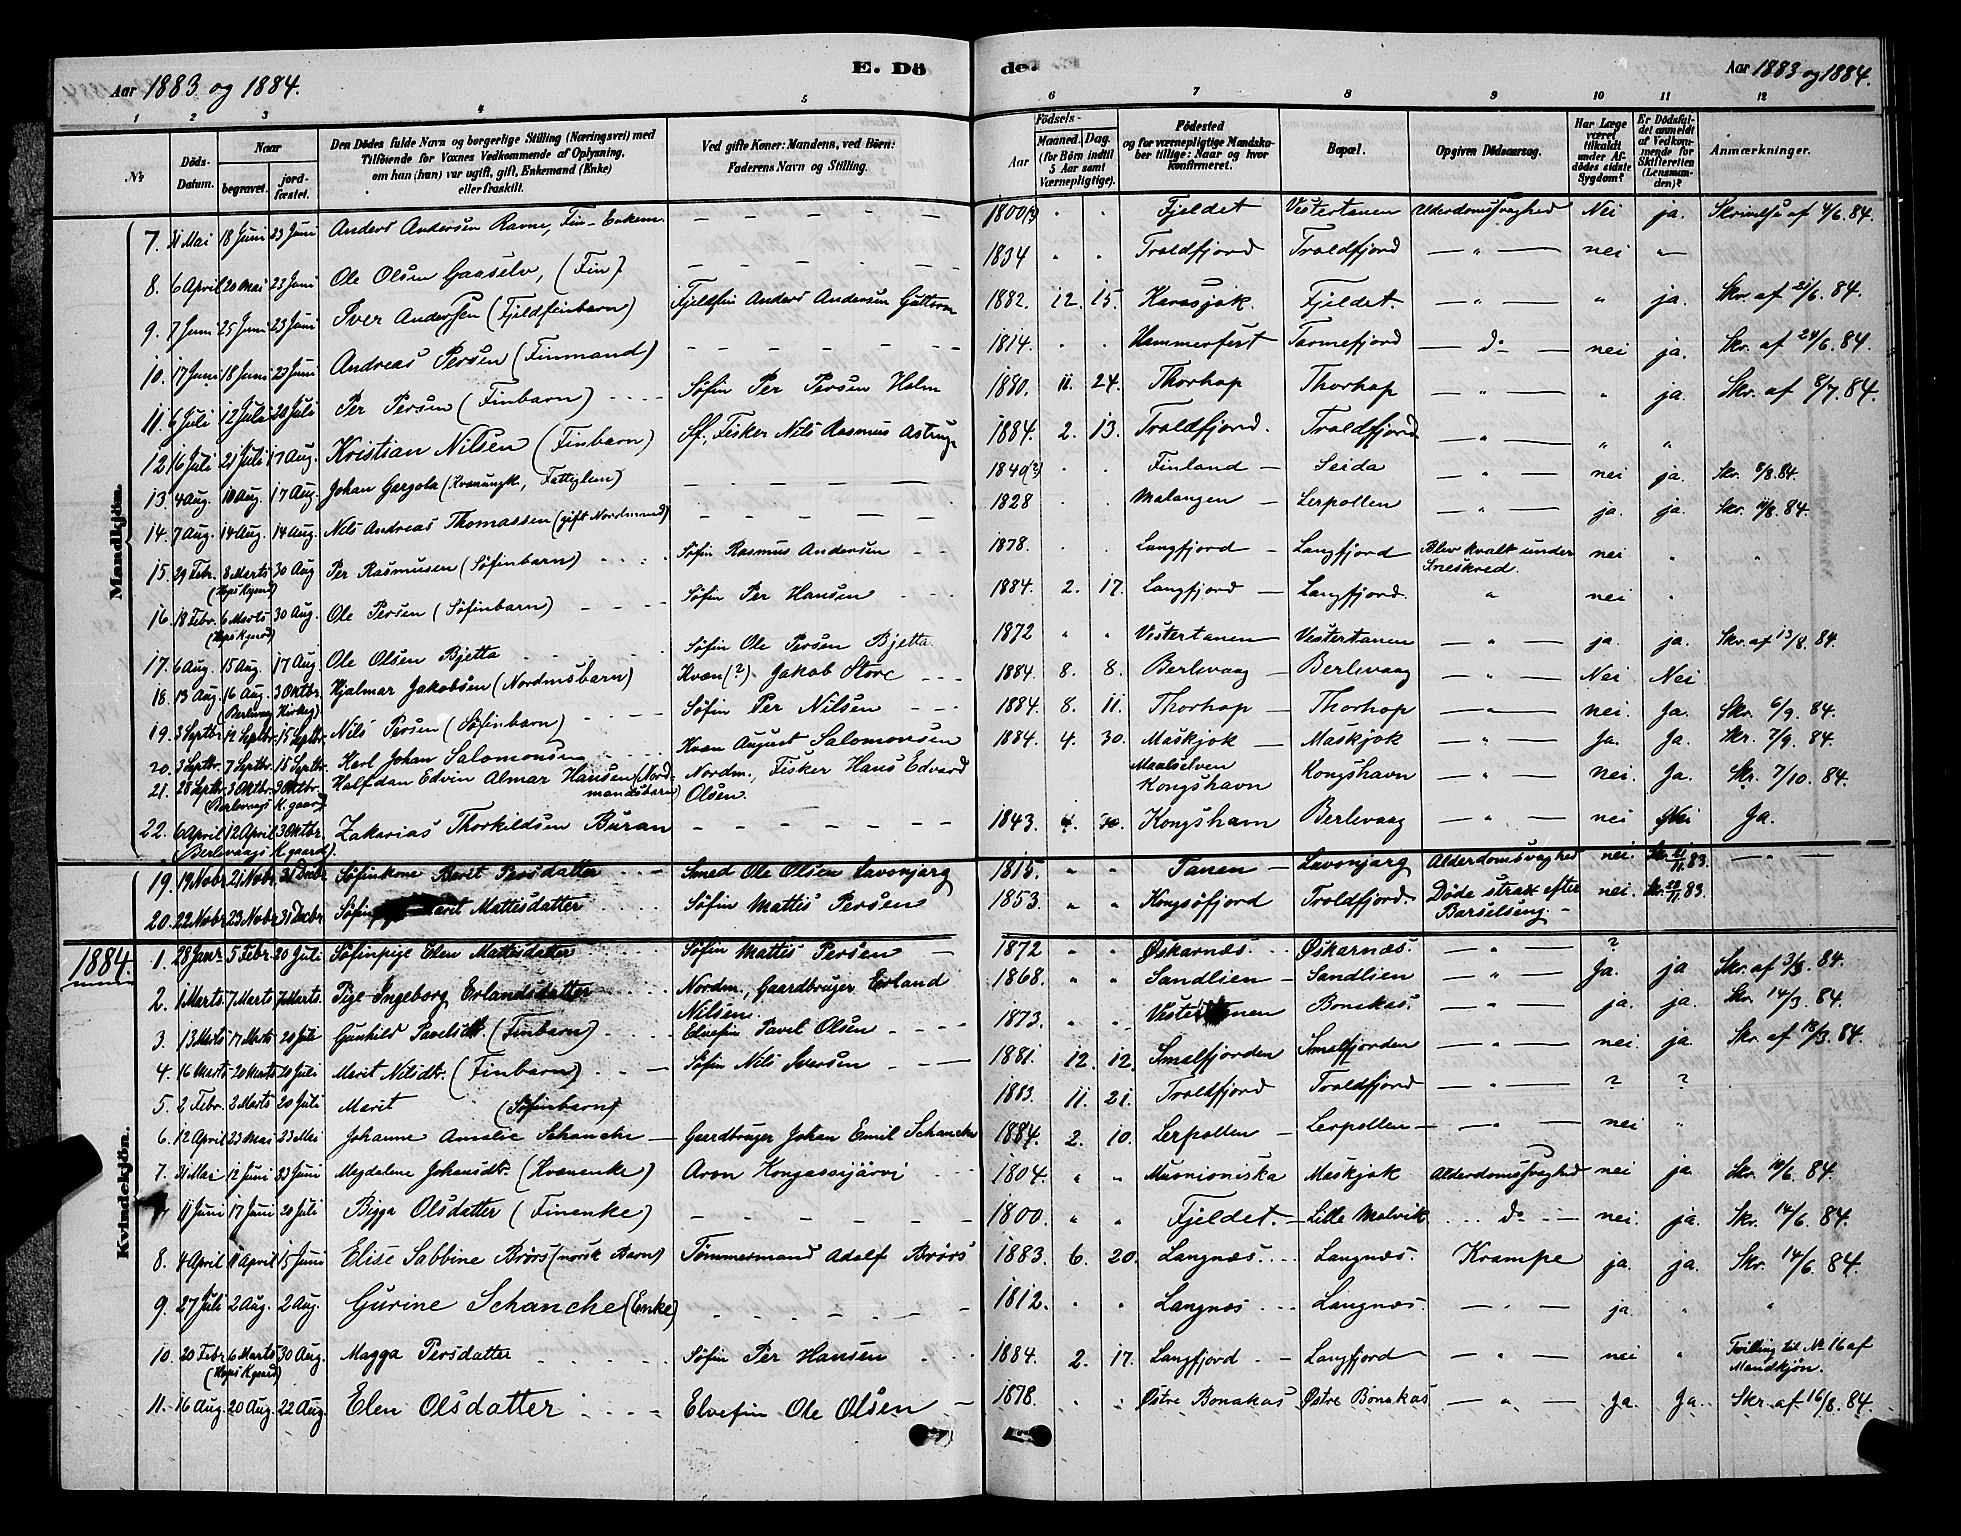 Aar 1883 og 1884. E. Dö de. Aar 1883 og 1884.
1 2 3 4 5 6 7 8 9 10 11 12
№ Döds-Datum. Naar begravet. jordfæstet. Den Dödes fulde Navn og borgerlige Stilling (Næringsvei) med Tilföiende for Voxnes Vedkommende af Oplysning, om han (hun) var ugift, gift, Enkemand (Enke) eller fraskilt. Ved gifte Koner: Mandens, ved Börn: Faderens Navn og Stilling. Födsels- Aar Maaned. Dag. (for Börn indtil 5 Aar samt Værnepligtige). Födested og for værnepligtige Mandskaber tillige: Naar og hvor konfirmeret. Bopæl. Opgiven Dödsaarsag. Har Læge været tilkaldt under Afdödes sidste Sygdom? Er Dödsfaldet anmeldt af Vedkommende for Skifteretten (Lensmanden)? Anmærkninger.
Mandkjön.
7. 31 Mai 18 Juni 23 Juni Anders Andersen Ravne, Fin-Enkem. — — — — — 1800(?) Fjeldet Vestertanen Alderdomssvaghed Nei ja. Skrivelse af 4/6. 84.
8. 6 April 20 Mai 23 Juni Ole Olsen Gaaselv, (Fin). — — — — — 1834 " " Troldfjord Troldfjord — " — nei " —
9. 7 Juni 25 Juni 23 Juni Iver Andersen (Fjeldfinbarn) Fjeldfin Anders Andersen Guttorm 1882. 12. 15. Karasjok. Fjeldet. — " — " ja. Skr. af 21/6. 84.
10. 17 Juni 18 Juni 23 Juni Andreas Persen (Finmand) — — — — — 1814. Hammerfest Tarmefjord — do — nei ja. Skr. af 24/6. 84.
11. 6 Juli 12 Juli 20 Juli Per Persen (Finbarn) Søfin Per Persen Holm 1880. 11. 24. Thorhop Thorhop — " — " ja. Skr. af 8/7. 84.
12. 16 Juli 21 Juli 17 Aug. Kristian Nilsen (Finbarn) Sf. Fisker Nils Rasmus 1884. 2. 13. Troldfjord. Troldfjord — " — " "
13. 4 Aug. 10 Aug. 17 Aug. Johan Gargola — — — — — 1849(?) Finland — Seida — " — nei ja. Skr. 8/8. 84.
14. 7 Aug. 14 Aug. 14 Aug. Nils Andreas Thomassen (gift Nordmand) — — — — — 1828 Malangen — Lerpollen — " — ja. ja. Skr. 11/8. 84.
15. 29 Febr. 8 Marts 30 Aug. (Hops Kgaard) Per Rasmusen (Søfinbarn) Søfin Rasmus Andersen — 1878. Langfjord — Langfjord Blev kvalt under Sneskred. nei " "
16. 18 Febr. 6 Marts 30 Aug. (Hops Kgaard) Ole Persen (Søfinbarn) Søfin Per Hansen 1884. 2. 17. Langfjord — Langfjord. " nei "
17. 6 Aug. 15 Aug. 17 Aug. Ole Olsen Bjetta Søfin Ole Persen Bjetta. 1872 " " Vestertanen — Vestertanen — " — ja. ja. Skr. af 13/8. 84.
18. 13 Aug. 16 Aug. 3 Oktbr. (Berlevaag Kirkeg) Hjalmar Jakobsen (Nordmsbarn) Kvæn (?). Jakob Store 1884. 8. 8. Berlevaag — Berlevaag — " — Nei Nei
19. 3 Septbr. 12 Septbr. 15 Septbr. Nils Persen (Søfinbarn) Søfin Per Nilsen 1884. 8. 11. Thorhop — Thorhop — " — nei. Ja. Skr. 6/9. 84.
20. 3 Septbr. 7 Septbr. 15 Septbr. Karl Johan Salomonsen Kvæn August Salomonsen 1884. 4. 30. Maskjok — Maskjok — " — Ja. Ja. Skr. 7/9. 84.
21. 28 Septbr. 3 Oktbr. 3 Oktbr. (Berlevaags Kgaard) Halfdan Edvin Almar Hansen (Nordmandsbarn) Nordm., Fisker Hans Edvard Olsen. Maalselven Kongshavn Kongshavn — " — nei Ja. Skr. 7/10. 84.
22. 6 April 12 April 3 Oktbr. (Berlevaags Kgaard). Zakarias Thorkildsen Buran — — — — — — 1843. 4. 30. Kongshavn Berlevaag — " — nei Nei Ja.
19. 19 Novbr. 21 Novbr. 31 Decbr. Søfinkone Berit Persdatter Smed Ole Olsen Lavonjarg 1815. " " Tanen — Lavonjarg Alderdomssvaghed nei. Skr. 21/11. 83. — " —
20. 22 Novbr. 23 Novbr. 31 Decbr. Søfin Marit Mattisdatter Søfin Mattis Persen 1853. " " Kongsøfjord Troldfjord. Døde strax efter Barselseng. nei. Skr. 24/11. 83.
Kvindekjön.
1884. 1. 28 Janr 5 Febr. 20 Juli Søfinpige Elen Mattisdatter Søfin Mattis Persen — 1872 " " Øskarnæs. Øskarnæs. — " — ?
2. 1 Marts 7 Marts 7 Marts. Pige Ingeborg Erlandsdatter Nordm., Gaardbruger Erland Nilsen. 1868. " " Sandlien — Sandlien — " — Ja. ja Skr. af 3/3. 84.
3. 13 Marts 17 Marts 20 Juli Gunhild Pavelsdt. (Finbarn) Elvefin Pavel Olsen 1873. " " Vestertanen Bonakas. — " — ja. ja. Skr. 14/3. 84.
4. 16 Marts 20 Marts 20 Juli Marit Nilsdt. (Finbarn) Søfin Nils Iversen 1881. 12. 12. Smalfjorden Smalfjorden — " — nei. ja. Skr. af 18/3. 84.
5. 2 Febr. 2 Marts 20 Juli Marit (Søfinbarn) 1883. 11. 21. Troldfjord Troldfjord — " — ? ?
6. 12 April 23 Mai 23 Mai Johanne Amalie Schanche — Gaardbruger Johan Emil Schanche 1884. 2. 10. Lerpollen — Lerpollen — — " — nei "
7. 31 Mai 12 Juni 23 Juni Magdalene Johansdt. (Kvænenke) Aron Kongassijärvi 1804. " " Muonioniska Maskjok Alderdomssvaghed nei ja. Skr. 10/6. 84.
11 Juni 17 Juni 20 Juli Bigga Olsdatter (Finenke) — — — — — 1800. " " Fjeldet. — Lille Molvik do — nei. ja. Skr. 14/6. 84.
8. 4 April 11 April 15 Juni Elise Sabbine Brørs (norsk Barn) Tømmermand Adolf Brørs 1883. 6. 20. Langnæs. Langnæs. Krampe ja. ja. Skr. 14/6. 84.
9. 27 Juli 2 Aug. 2 Aug. Gurine Schanche (Enke) — — — — — 1812. " " Langnæs Langnæs. — " — ja. " "
10. 20 Febr. 6 Marts 30 Aug. (Hops Kgaard) Magga Persdatter Søfin Per Hansen 1884. 2. 17. Langfjord — Langfjord — " — nei " Tvilling til No 16 af Mandkjøn.
11. 16 Aug. 20 Aug. 22 Aug. Elen Olsdatter Elvefin Ole Olsen — 1878. " " Østre Bonakas Østre Bonakas — " — Ja. Ja. Skr. af 16/8. 84.